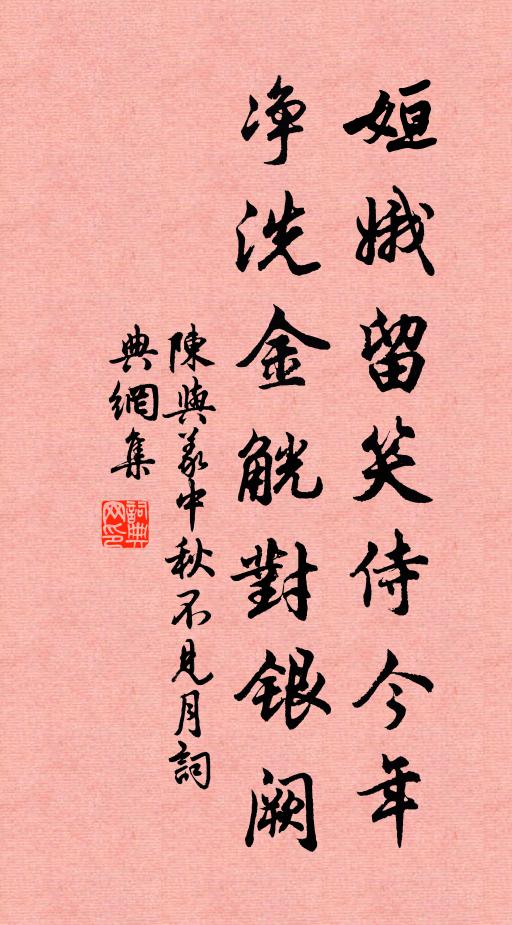 姮娥留笑待今年
净洗金觥對銀阙
陳與義中秋不見月詞
典網集
詞典網印